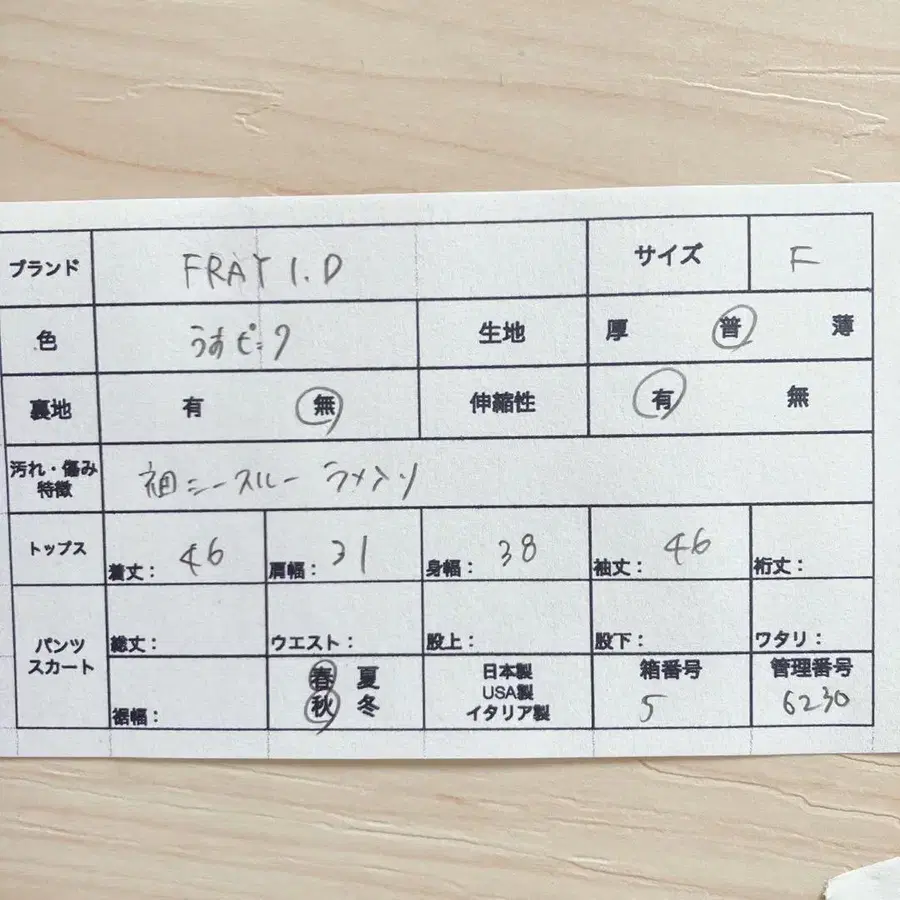 ブランド FRAY I.D サイズ F
色 うすピンク 生地 厚 普 薄
裏地 有 無 伸縮性 有 無
汚れ・傷み
特徴 袖シースルー ラメ入り
トップス 着丈: 46 肩幅: 31 身幅: 38 袖丈: 46 裄丈:
パンツ
スカート 総丈: ウエスト: 股上: 股下: ワタリ:
裾幅: 春 夏
秋 冬
日本製
USA製
イタリア製
箱番号 5
管理番号 6230